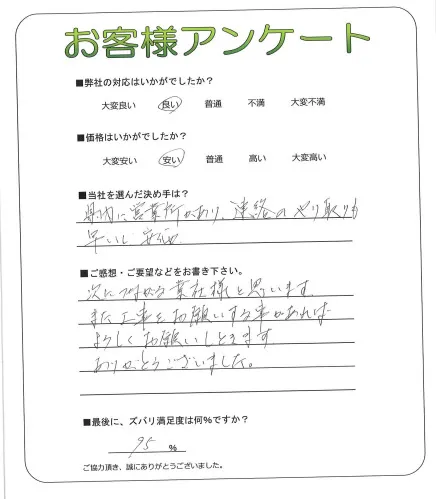 お客様アンケート
■弊社の対応はいかがでしたか？
大変良い　良い　普通　不満　大変不満
■価格はいかがでしたか？
大変安い　安い　普通　高い　大変高い
■当社を選んだ決め手は？
県内に営業所があり、連絡のやり取りも
早いし
■ご感想・ご要望などをお書き下さい。
次につながる業社様と思います。
また工事をお願いする事があれば
よろしくお願いしときます
ありがとうございました。
■最後に、ズバリ満足度は何%ですか？
95 %
ご協力頂き、誠にありがとうございました。